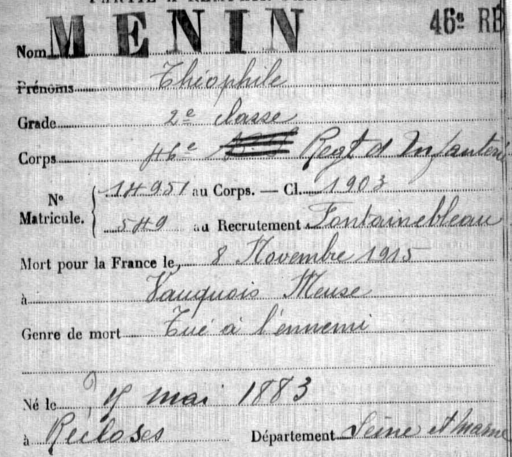 MENIN 46e RÉ
Nom
Prénoms Théophile
Grade 2e classe
Corps 46e Regt d'Infanterie
No Matricule. 14951 au Corps. — Cl. 1903
549 au Recrutement Fontainebleau
Mort pour la France le 8 Novembre 1915
à Vauquois Meuse
Genre de mort Tué à l'ennemi
Né le mai 1883
à Recloses Département Seine et Marne